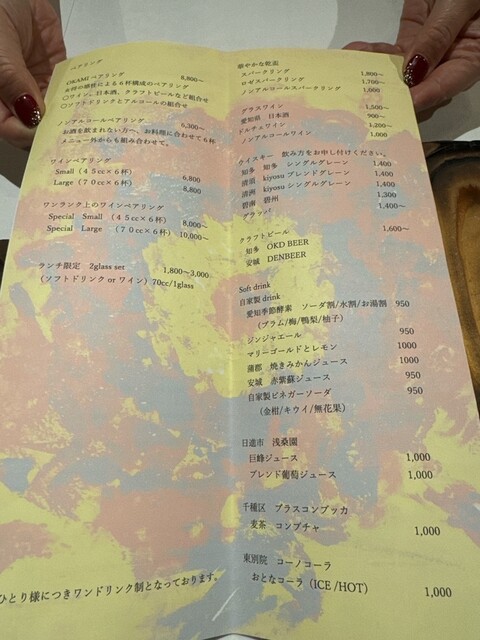 ペアリング
OKAMI ペアリング 8,800~
女将の感性による6杯構成のペアリング
○ワイン、日本酒、クラフトビールなど組合せ
○ソフトドリンクとアルコールの組合せ
ノンアルコールペアリング 6,300~
お酒を飲まれない方へ、お料理に合わせて6杯
メニュー外からも組み合わせて。
ワインペアリング
Small (45cc×6杯) 6,800
Large (70cc×6杯) 8,800
ワンランク上のワインペアリング
Special Small (45cc×6杯) 8,000~
Special Large (70cc×6杯) 10,000~
ランチ限定 2glass set 1,800~3,000
(ソフトドリンク or ワイン) 70cc/1glass
ひとり様につきワンドリンク制となっております。
華やかな乾盃
スパークリング 1,800~
ロゼスパークリング 1,700~
ノンアルコールスパークリング 1,000
グラスワイン 1,500~
愛知県 日本酒 900~
ドルチェワイン 1,200~
ノンアルコールワイン 1,000
ウイスキー 飲み方をお申し付けください。
知多 知多 シングルグレーン 1,400
清須 kiyosu ブレンドグレーン 1,400
清洲 kiyosu シングルグレーン 1,400
碧南 碧州 1,300
グラッパ 1,400~
クラフトビール 1,600~
知多 OKD BEER
安城 DENBEER
Soft drink
自家製 drink
愛知季節酵素 ソーダ割/水割/お湯割 950
(プラム/梅/鴨梨/柚子)
ジンジャエール 950
マリーゴールドとレモン 1000
蒲郡 焼きみかんジュース 1000
安城 赤紫蘇ジュース 950
自家製ビネガーソーダ 950
(金柑/キウイ/無花果)
日進市 浅桑園
巨峰ジュース 1,000
ブレンド葡萄ジュース 1,000
千種区 プラスコンブッカ
麦茶 コンブチャ 1,000
東別院 コーノコーラ
おとなコーラ (ICE /HOT) 1,000